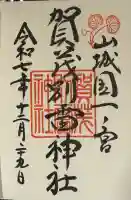 山城国一ノ宮
賀茂別雷神社
令和七年十二月二十九日